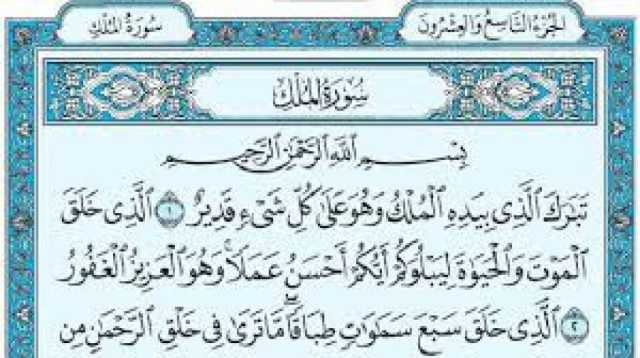 الجزء التاسع والعشرون
سورة الملك
سُورَةُ المُلْكِ
بِسْمِ ٱللَّهِ ٱلرَّحْمَٰنِ ٱلرَّحِيمِ
تَبَٰرَكَ ٱلَّذِي بِيَدِهِ ٱلْمُلْكُ وَهُوَ عَلَىٰ كُلِّ شَيْءٍ قَدِيرٌ ١ ٱلَّذِي خَلَقَ
ٱلْمَوْتَ وَٱلْحَيَوٰةَ لِيَبْلُوَكُمْ أَيُّكُمْ أَحْسَنُ عَمَلًا ۚ وَهُوَ ٱلْعَزِيزُ ٱلْغَفُورُ
٢ ٱلَّذِي خَلَقَ سَبْعَ سَمَٰوَٰتٍ طِبَاقًا ۖ مَّا تَرَىٰ فِي خَلْقِ ٱلرَّحْمَٰنِ مِن